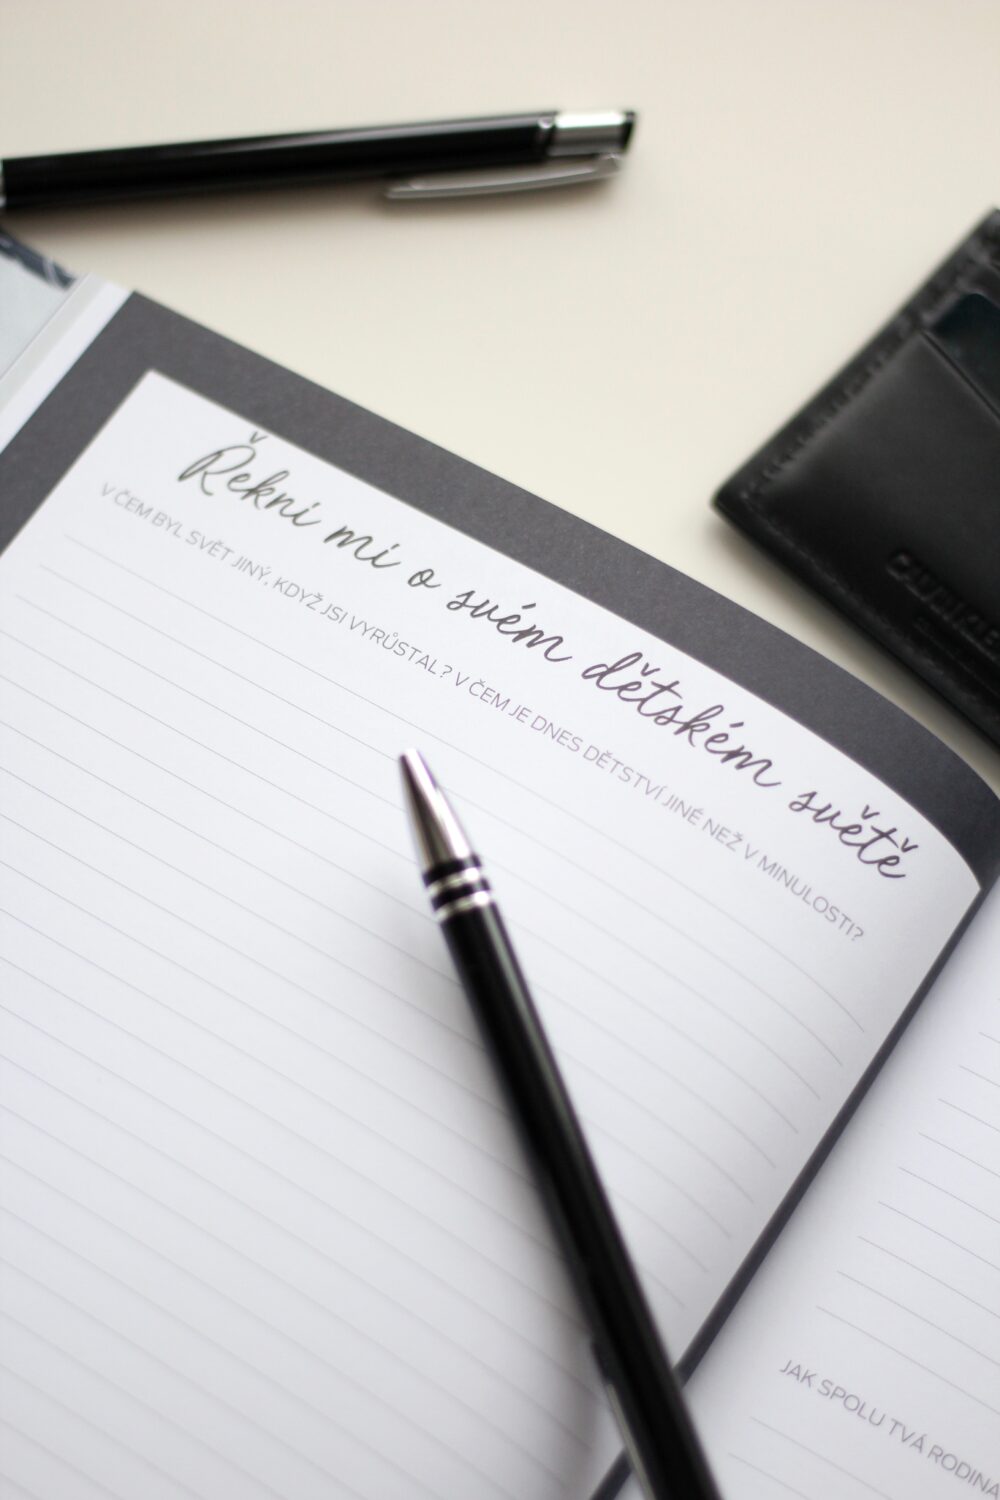 Řekni mi o svém dětském světě
V ČEM BYL SVĚT JINÝ, KDYŽ JSI VYRŮSTAL? V ČEM JE DNES DĚTSTVÍ JINÉ NEŽ V MINULOSTI?
JAK SPOLU TVÁ RODINA